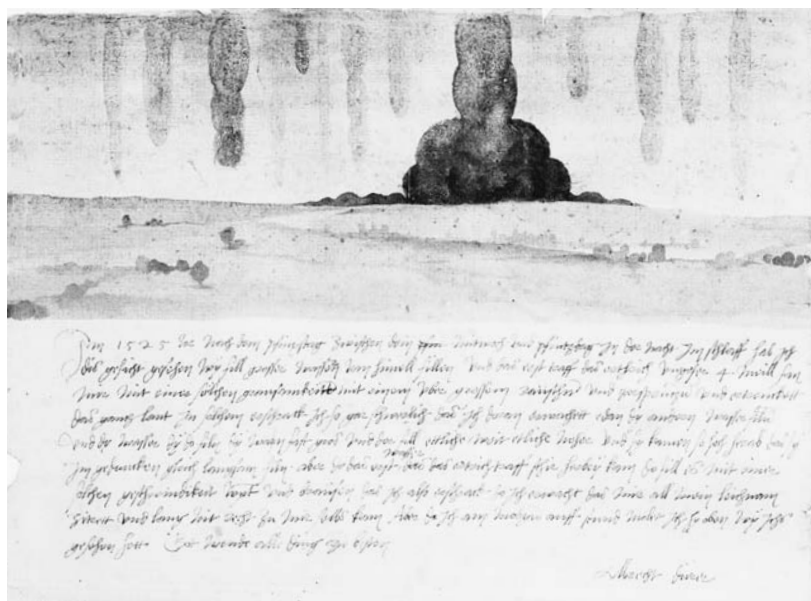 Im 1525 Jor nach dem pfinxtag zwischen dem mitwoch und pfintzdag in der nacht im schlaff hab ich
dis gesicht gesehen wy fill grosser wassern vom himell fillen Und das erst traff das erthrich ungefer 4 meill fan
mir mit einer solchen grausamkeitt mit einem uber grossem raüschn und zersprützn und ertrenckett
das gantz lant In solchem erschrack ich so gar schwerlich das ich doran erwachett edan dy andern wasser filn
Und dy wasser dy do filn dy warn fast gros und der fill ettliche weit etliche neher und sy kamen so hoch herab das sy
im gedancken gleich langsam filn aber do das erst wasser das das ertrich traff schir herbey kam do fill es mit einer
solchen geschwindikeit wynt und braüsen das ich also erschrack do ich erwacht das mir all mein leichnam
zitrett und lang nit recht zu mir selbs kam Aber do ich am morgen auff stund molet ich hy oben wy ichs
gesehen hett Got wende alle ding zu besten
Albrecht dürer